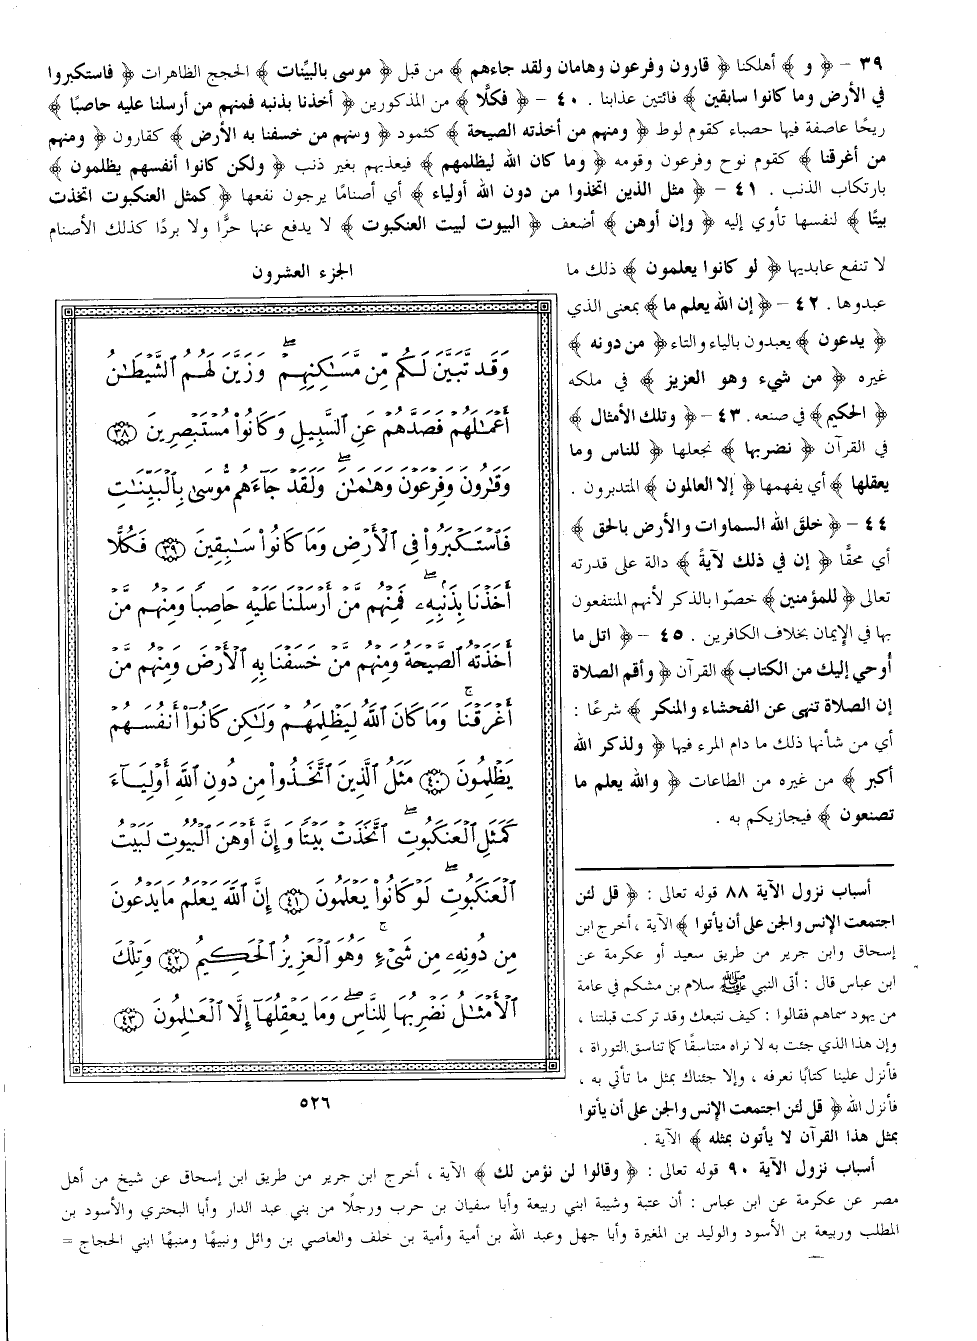 ٣٩ - ﴿ و ﴾ أهلكنا ﴿ قارون وفرعون وهامان ولقد جاءهم ﴾ من قبل ﴿ موسى بالبيِّنات ﴾ الحجج الظاهرات ﴿ فاستكبروا
في الأرض وما كانوا سابقين ﴾ فائتين عذابنا . ٤٠ - ﴿ فكلًّا ﴾ من المذكورين ﴿ أخذنا بذنبه فمنهم من أرسلنا عليه حاصبًا ﴾
ريحًا عاصفة فيها حصباء كقوم لوط ﴿ ومنهم من أخذته الصيحة ﴾ كثمود ﴿ ومنهم من خسفنا به الأرض ﴾ كقارون ﴿ ومنهم
من أغرقنا ﴾ كقوم نوح وفرعون وقومه ﴿ وما كان الله ليظلمهم ﴾ فيعذبهم بغير ذنب ﴿ ولكن كانوا أنفسهم يظلمون ﴾
بارتكاب الذنب . ٤١ - ﴿ مثل الذين اتخذوا من دون الله أولياء ﴾ أي أصنامًا يرجون نفعها ﴿ كمثل العنكبوت اتخذت
بيتًا ﴾ لنفسها تأوي إليه ﴿ وإن أوهن ﴾ أضعف ﴿ البيوت لبيت العنكبوت ﴾ لا يدفع عنها حرًّا ولا بردًا كذلك الأصنام
لا تنفع عابديها ﴿ لو كانوا يعلمون ﴾ ذلك ما
عبدوها . ٤٢ - ﴿ إن الله يعلم ما ﴾ بمعنى الذي
﴿ يدعون ﴾ يعبدون بالياء والتاء ﴿ من دونه ﴾
غيره ﴿ من شيء وهو العزيز ﴾ في ملكه
﴿ الحكيم ﴾ في صنعه . ٤٣ - ﴿ وتلك الأمثال ﴾
في القرآن ﴿ نضربها ﴾ نجعلها ﴿ للناس وما
يعقلها ﴾ أي يفهمها ﴿ إلا العالمون ﴾ المتدبرون .
٤٤ - ﴿ خلق الله السماوات والأرض بالحق ﴾
أي محقًّا ﴿ إن في ذلك لآيةً ﴾ دالة على قدرته
تعالى ﴿ للمؤمنين ﴾ خصّوا بالذكر لأنهم المنتفعون
بها في الإيمان بخلاف الكافرين . ٤٥ - ﴿ اتل ما
أوحي إليك من الكتاب ﴾ القرآن ﴿ وأقم الصلاة
إن الصلاة تنهى عن الفحشاء والمنكر ﴾ شرعًا :
أي من شأنها ذلك ما دام المرء فيها ﴿ ولذكر الله
أكبر ﴾ من غيره من الطاعات ﴿ والله يعلم ما
تصنعون ﴾ فيجازيكم به .
الجزء العشرون
وَقَد تَّبَيَّنَ لَكُم مِّن مَّسَٰكِنِهِمْ ۖ وَزَيَّنَ لَهُمُ ٱلشَّيْطَٰنُ
أَعْمَٰلَهُمْ فَصَدَّهُمْ عَنِ ٱلسَّبِيلِ وَكَانُوا۟ مُسْتَبْصِرِينَ ﴿٣٨﴾
وَقَٰرُونَ وَفِرْعَوْنَ وَهَٰمَٰنَ ۖ وَلَقَدْ جَآءَهُم مُّوسَىٰ بِٱلْبَيِّنَٰتِ
فَٱسْتَكْبَرُوا۟ فِى ٱلْأَرْضِ وَمَا كَانُوا۟ سَٰبِقِينَ ﴿٣٩﴾ فَكُلًّا
أَخَذْنَا بِذَنۢبِهِۦ ۖ فَمِنْهُم مَّنْ أَرْسَلْنَا عَلَيْهِ حَاصِبًا وَمِنْهُم مَّنْ
أَخَذَتْهُ ٱلصَّيْحَةُ وَمِنْهُم مَّنْ خَسَفْنَا بِهِ ٱلْأَرْضَ وَمِنْهُم مَّنْ
أَغْرَقْنَا ۚ وَمَا كَانَ ٱللَّهُ لِيَظْلِمَهُمْ وَلَٰكِن كَانُوٓا۟ أَنفُسَهُمْ
يَظْلِمُونَ ﴿٤٠﴾ مَثَلُ ٱلَّذِينَ ٱتَّخَذُوا۟ مِن دُونِ ٱللَّهِ أَوْلِيَآءَ
كَمَثَلِ ٱلْعَنكَبُوتِ ٱتَّخَذَتْ بَيْتًا ۖ وَإِنَّ أَوْهَنَ ٱلْبُيُوتِ لَبَيْتُ
ٱلْعَنكَبُوتِ ۖ لَوْ كَانُوا۟ يَعْلَمُونَ ﴿٤١﴾ إِنَّ ٱللَّهَ يَعْلَمُ مَا يَدْعُونَ
مِن دُونِهِۦ مِن شَىْءٍ ۚ وَهُوَ ٱلْعَزِيزُ ٱلْحَكِيمُ ﴿٤٢﴾ وَتِلْكَ
ٱلْأَمْثَٰلُ نَضْرِبُهَا لِلنَّاسِ ۖ وَمَا يَعْقِلُهَآ إِلَّا ٱلْعَٰلِمُونَ ﴿٤٣﴾
٥٢٦
أسباب نزول الآية ٨٨ قوله تعالى : ﴿ قل لئن
اجتمعت الإنس والجن على أن يأتوا ﴾ الآية ، أخرج ابن
إسحاق وابن جرير من طريق سعيد أو عكرمة عن
ابن عباس قال : أتى النبي ﷺ سلام بن مشكم في عامة
من يهود سماهم فقالوا : كيف نتبعك وقد تركت قبلتنا ،
وإن هذا الذي جئت به لا نراه متناسقًا كما تناسق التوراة ،
فأنزل علينا كتابًا نعرفه ، وإلا جئناك بمثل ما تأتي به ،
فأنزل الله ﴿ قل لئن اجتمعت الإنس والجن على أن يأتوا
بمثل هذا القرآن لا يأتون بمثله ﴾ الآية .
أسباب نزول الآية ٩٠ قوله تعالى : ﴿ وقالوا لن نؤمن لك ﴾ الآية ، أخرج ابن جرير من طريق ابن إسحاق عن شيخ من أهل
مصر عن عكرمة عن ابن عباس : أن عتبة وشيبة ابني ربيعة وأبا سفيان بن حرب ورجلًا من بني عبد الدار وأبا البحتري والأسود بن
المطلب وربيعة بن الأسود والوليد بن المغيرة وأبا جهل وعبد الله بن أمية وأمية بن خلف والعاصي بن وائل ونبيهًا ومنبهًا ابني الحجاج =